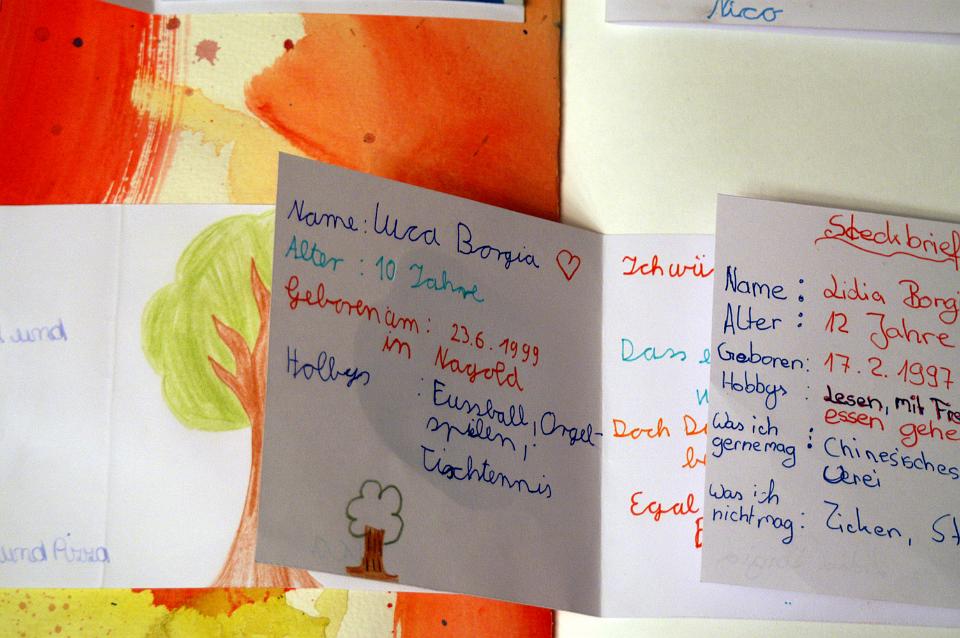 Nico
und
und Pizza
Name: Luca Borgia
Alter : 10 Jahre
Geboren am : 23.6.1999
in Nagold
Hobbys : Fussball, Orgel-
spielen,
Tischtennis
Ich wü
Dass e
Doch D
be
Egal
Steckbrief
Name : Lidia Borgi
Alter : 12 Jahre
Geboren: 17.2.1997
Hobbys : Lesen, mit Fre
essen gehe
Was ich
gernemag : Chinesisches
Was ich
nichtmag : Zicken, St